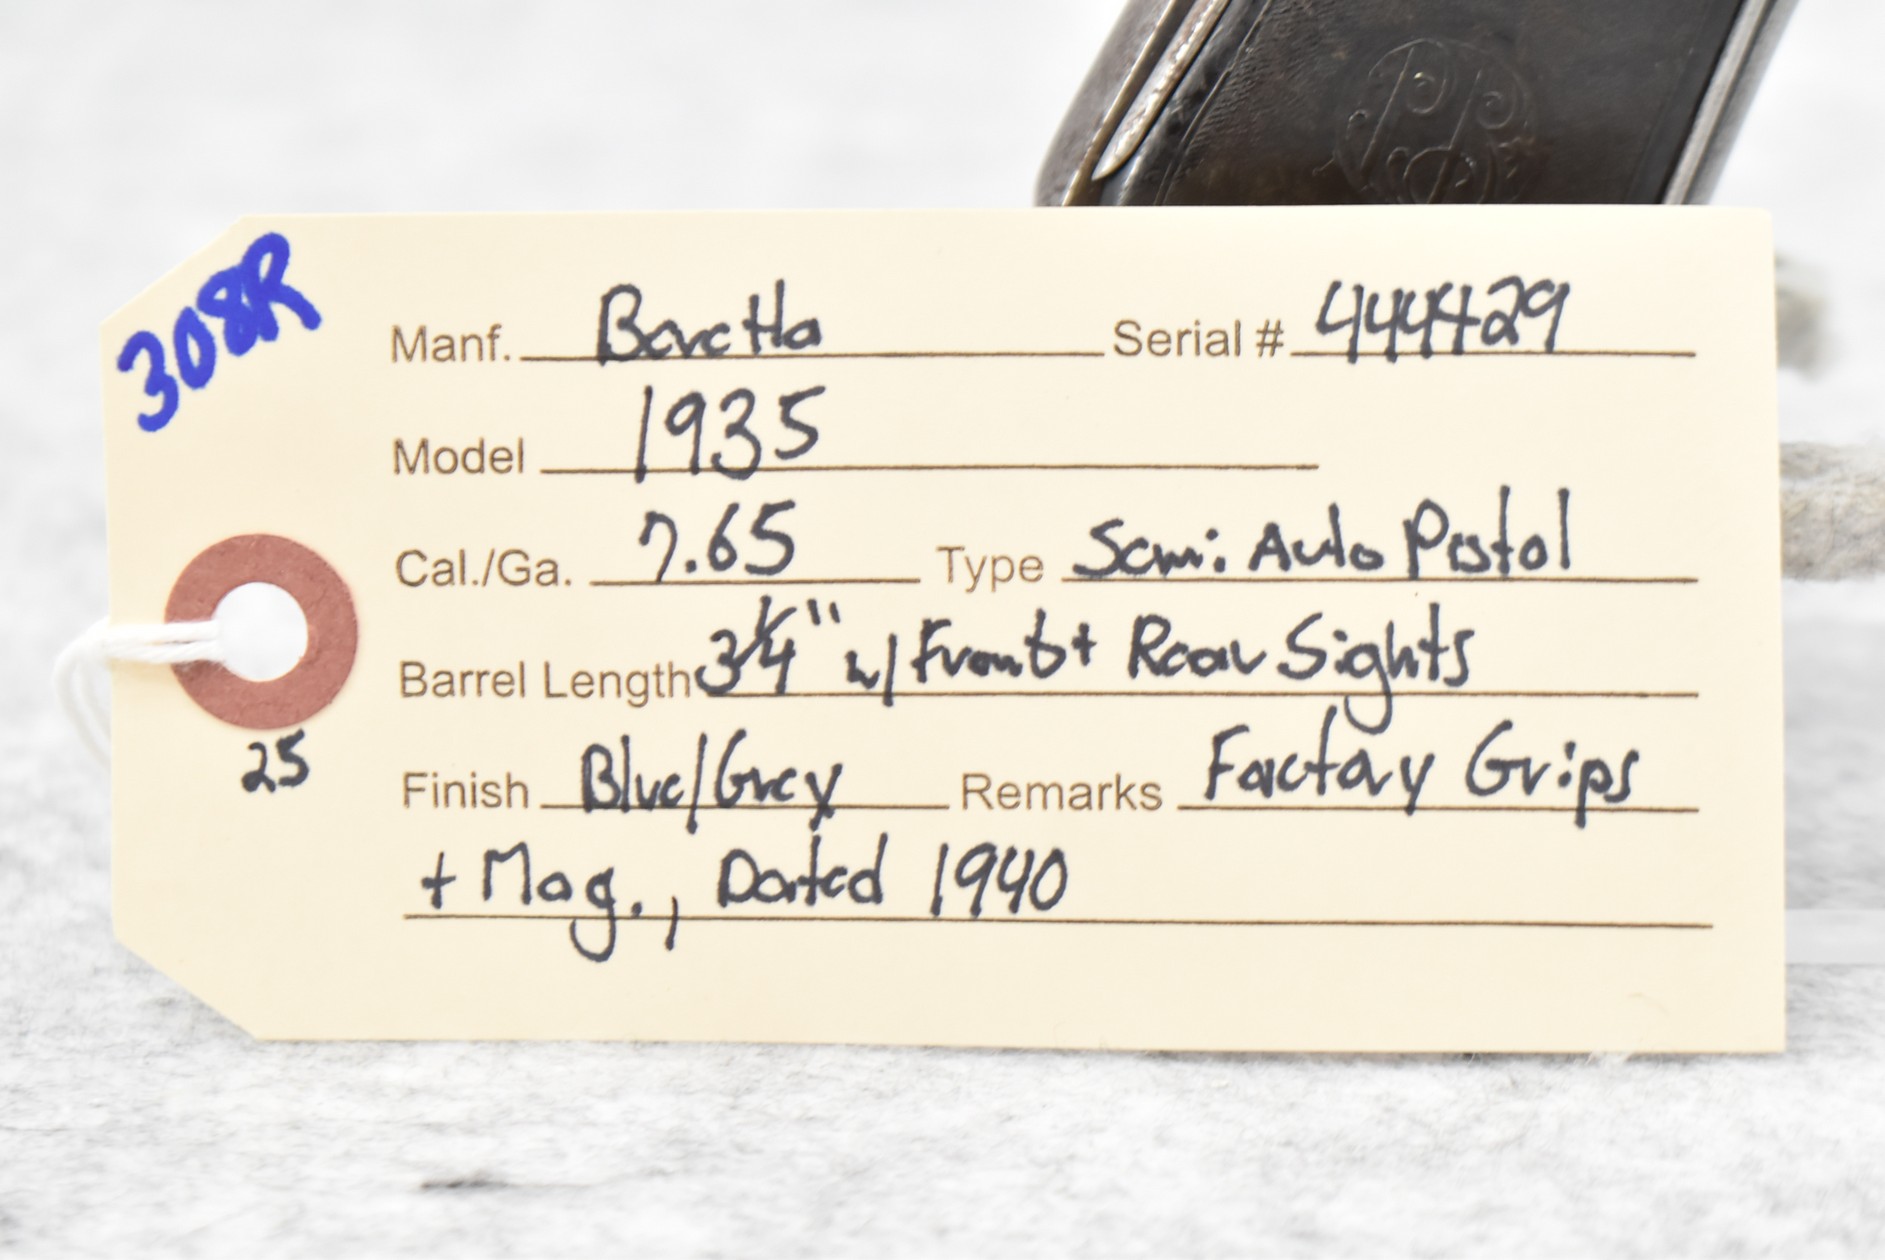 308R
Manf. Beretta Serial # 444429
Model 1935
Cal./Ga. 7.65 Type Semi Auto Pistol
Barrel Length 3 1/4" w/ Front + Rear Sights
25
Finish Blue/Grey Remarks Factory Grips
+ Mag., Dated 1940
PB